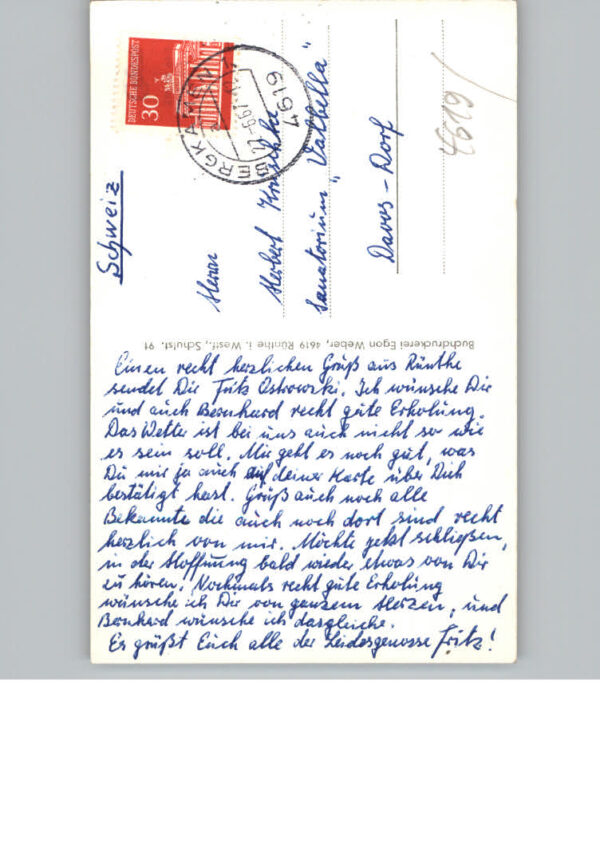 DEUTSCHE BUNDESPOST
30
BERGKAMEN
4619
4619
Schweiz
Herrn
Herbert Kruschke
Sanatorium „Valbella“
Davos-Dorf
Buchdruckerei Egon Weber, 4619 Rünthe i. Westf., Schulst. 91
Einen recht herzlichen Gruß aus Rünthe
sendet Dir Fritz Ostrowski. Ich wünsche Dir
und auch Bernhard recht gute Erholung.
Das Wetter ist bei uns auch nicht so wie
es sein soll. Mir geht es noch gut, was
Du mir ja auch auf deiner Karte über Dich
bestätigt hast. Grüß auch noch alle
Bekannte die auch noch dort sind recht
herzlich von mir. Möchte jetzt schließen,
in der Hoffnung bald wieder etwas von Dir
zu hören! Nochmals recht gute Erholung
wünsche ich Dir von ganzem Herzen, und
Bernhard wünsche ich dasgleiche.
Es grüßt Euch alle der Leidesgenosse Fritz!